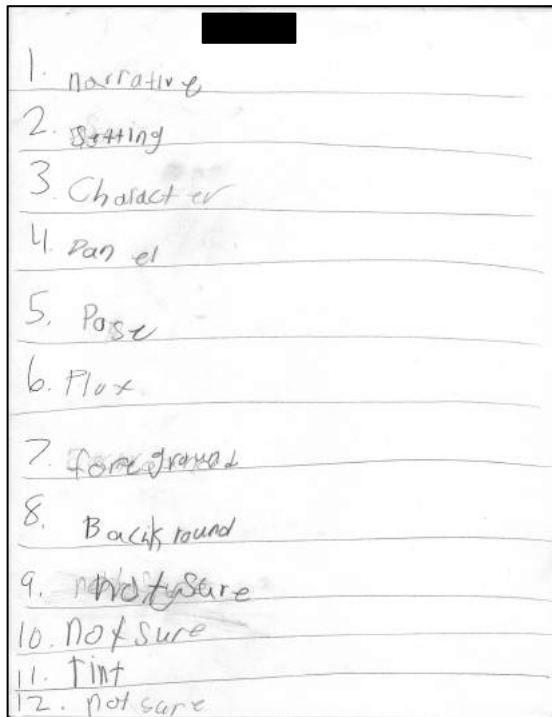 1. narrative
2. Setting
3. Character
4. Panel
5. Pose
6. Plux
7. foreground
8. Backround
9. not sure
10. not sure
11. Tint
12. not sure